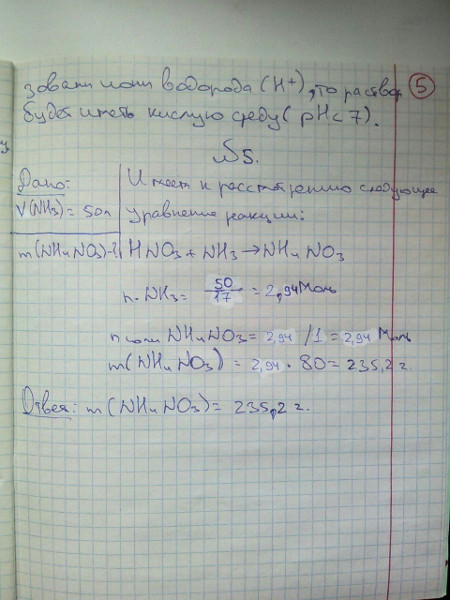 зовали иони водорода (H⁺), то раствор 5
будет иметь кислую среду (pH < 7).
№5.
Дано:
V(NH₃) = 50л
m(NH₄NO₃)-?
Имеем к рассмотрению следующее
уравнение реакции:
HNO₃ + NH₃ → NH₄NO₃
n. NH₃ = 50/17 = 2,94 Моль
n соли NH₄NO₃ = 2,94 /1 = 2,94 Моль
m(NH₄NO₃) = 2,94 · 80 = 235,2 г.
Ответ: m(NH₄NO₃) = 235,2 г.